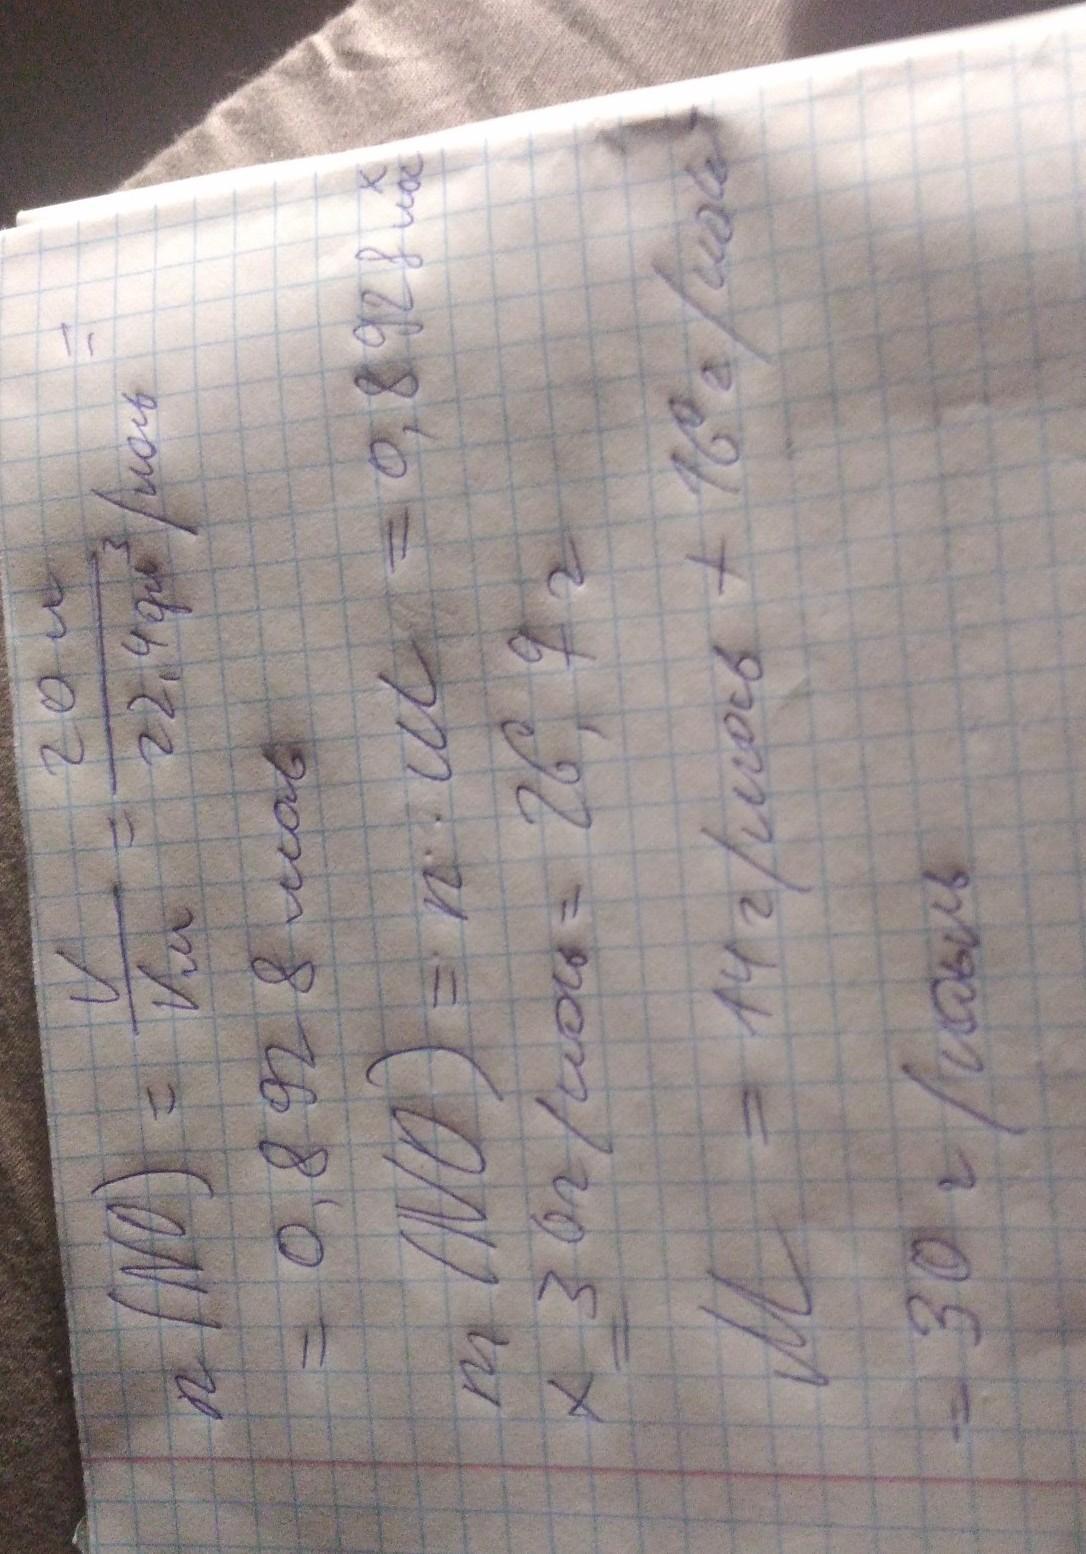 n (NO) = V/Vм = 20 л / 22,4 дм³/моль =
= 0,8928 моль
m (NO) = n · M = 0,8928 мол x
x 30г/моль = 26,7 г
M = 14 г/моль + 16 г/моль
= 30 г/моль